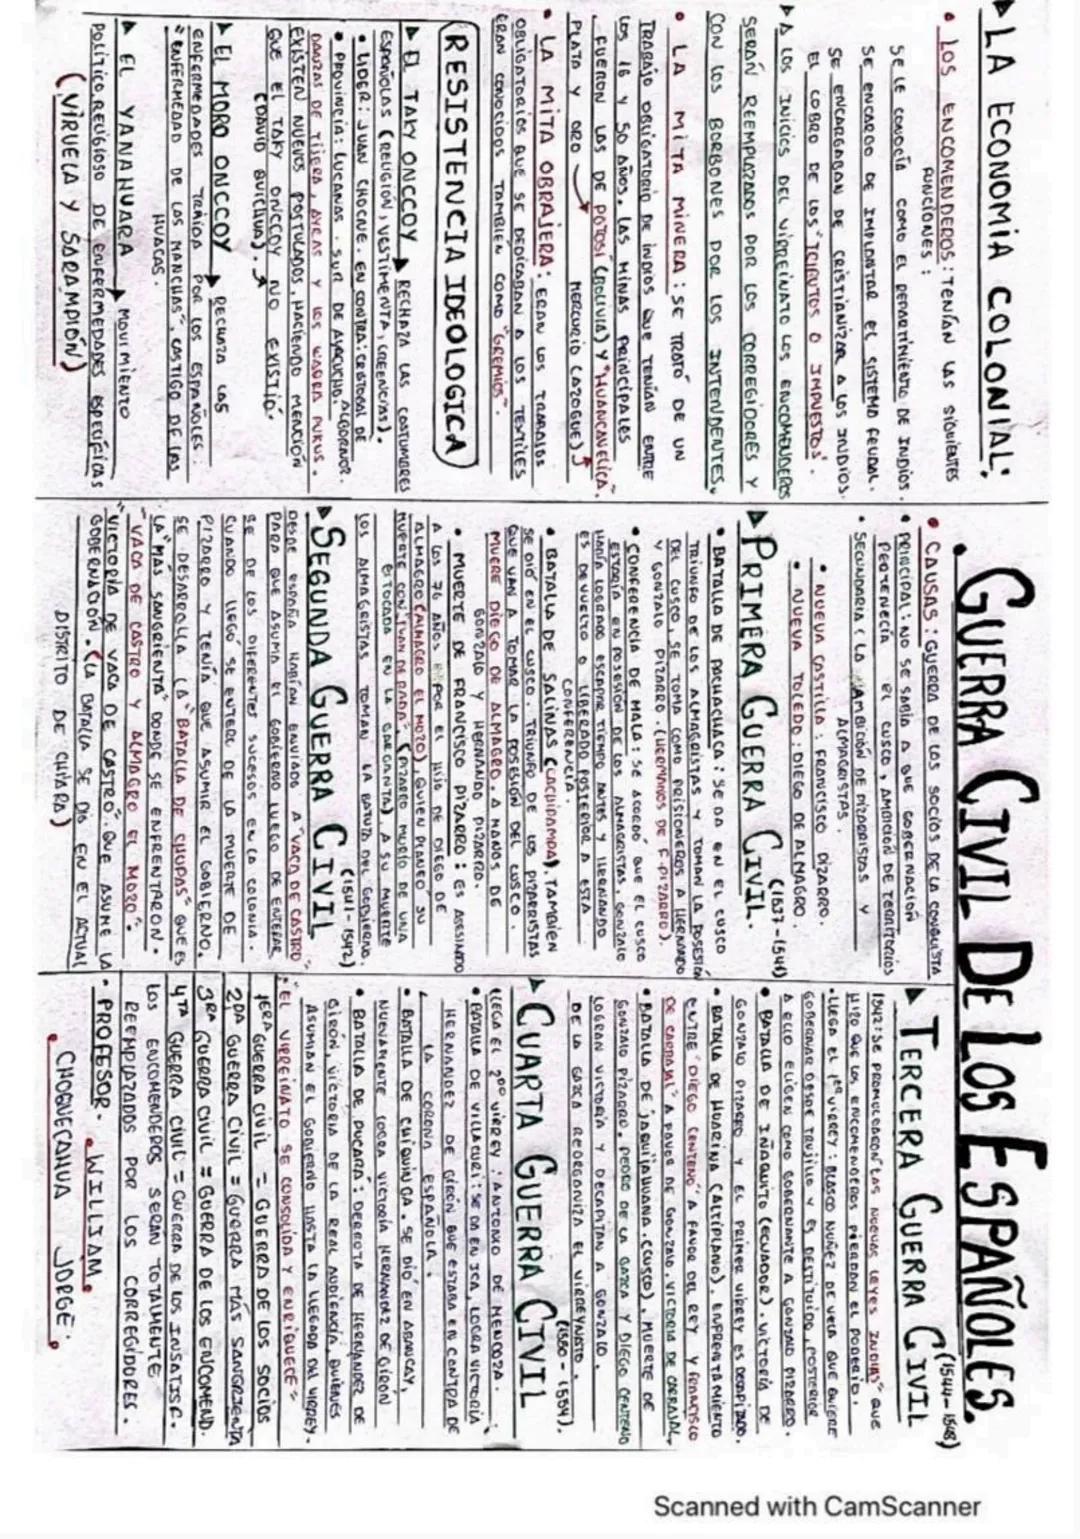 GUERRA CIVIL DE LOS ESPAÑOLES.
▸LA ECONOMIA COLONIAL:
• LOS ENCOMENDEROS: TENÍAN LAS SIGUIENTES
FUNCIONES:
SE LE CONOCÍA COMO EL REPARTIMIENTO DE INDIOS.
SE ENCARGO DE IMPLANTAR EL SISTEMA FEUDAL.
SE ENCARGABAN DE CRISTIANIZAR A LOS INDIOS.
EL COBRO DE LOS "TRIBUTOS O IMPUESTOS".
▸A LOS INICIOS DEL VIRREINATO LOS ENCOMENDEROS
SERÁN REEMPLAZADOS POR LOS CORREGIDORES Y
CON LOS BORBONES POR LOS INTENDENTES.
• LA MITA MINERA: SE TRATÓ DE UN
TRABAJO OBLIGATORIO DE INDIOS QUE TENÍAN ENTRE
LOS 18 Y 50 AÑOS. LAS MINAS PRINCIPALES
FUERON LAS DE POTOSÍ (BOLIVIA) Y "HUANCAVELICA."
PLATA Y ORO MERCURIO (AZOGUE)
• LA MITA OBRAJERA: ERAN LOS TRABAJOS
OBLIGATORIOS QUE SE DEDICABAN A LOS TEXTILES
ERAN CONOCIDOS TAMBIEN COMO "GREMIOS".
RESISTENCIA IDEOLOGICA
▸ EL TAKY ONCCOY ▸ RECHAZA LAS COSTUMBRES
ESPAÑOLAS (RELIGIÓN, VESTIMENTA, CREENCIAS).
• LIDER: JUAN CHOCNE. EN CONTRA: CRISTOBAL DE
• PROVINCIA: LUCANAS. SUR DE AYACUCHO. ALBORNOZ.
DANZAS DE TIJERA, AYLAS Y LOS WAQRA PUKUS.
EXISTEN NUEVOS POSTULADOS, HACIENDO MENCIÓN
QUE EL TAKY ONCCOY NO EXISTIÓ.
▸ EL MORO ONCCOY ▸ RECHAZA LAS
ENFERMEDADES TRAÍDA POR LOS ESPAÑOLES:
"ENFERMEDAD DE LAS MANCHAS", CASTIGO DE LAS
HUACAS.
▸ EL YANAHUARA ▸ MOVIMIENTO
POLÍTICO RELIGIOSO DE ENFERMEDADES ESPECÍFICAS
(VIRUELA Y SARAMPIÓN)
• CAUSAS: GUERRA DE LOS SOCIOS DE LA CONQUISTA
• PRINCIPAL: NO SE SABÍA A QUE GOBERNACIÓN
PERTENECÍA EL CUSCO, AMBICIÓN DE TERRITORIOS
• SECUNDARIA: LA AMBICIÓN DE PIZARRISTAS Y
ALMAGRISTAS.
• NUEVA CASTILLA: FRANCISCO PIZARRO.
• NUEVA TOLEDO: DIEGO DE ALMAGRO.
▸PRIMERA GUERRA CIVIL. (1537-1541)
• BATALLA DE PACHACHACA: SE DA EN EL CUSCO
TRIUNFO DE LOS ALMAGRISTAS Y TOMAN LA POSESIÓN
DEL CUSCO, SE TOMA COMO PRISIONEROS A HERNANDO
Y GONZALO PIZARRO. (HERMANOS DE F. PIZARRO).
• CONFERENCIA DE MALA: SE ACCEDÓ QUE EL CUSCO
ESTARÍA EN POSESIÓN DE LOS ALMAGRISTAS, GONZALO
HABÍA LOGRADO ESCAPAR TIEMPO ANTES Y HERNANDO
ES DEVUELTO O LIBERADO POSTERIOR A ESTA
CONFERENCIA.
• BATALLA DE SALINAS (CACHIPAMPA), TAMBIEN
SE DIÓ EN EL CUSCO. TRIUNFO DE LOS PIZARRISTAS
QUE VAN A TOMAR LA POSESIÓN DEL CUSCO.
MUERE DIEGO DE ALMAGRO, A MANOS DE
GONZALO Y HERNANDO PIZARRO.
• MUERTE DE FRANCISCO PIZARRO: ES ASESINADO
A LOS 76 AÑOS POR EL HIJO DE DIEGO DE
ALMAGRO (ALMAGRO EL MOZO), QUIEN PLANEO SU
MUERTE CON "JUAN DE RADA". (PIZARRO MURIÓ DE UNA
ESTOCADA EN LA GARGANTA) A SU MUERTE
LOS ALMAGRISTAS TOMAN LA BATUTA DEL GOBIERNO.
▸SEGUNDA GUERRA CIVIL. (1541-1542)
DESDE ESPAÑA HABÍAN ENVIADO A "VACA DE CASTRO",
PARA QUE ASUMIR EL GOBIERNO LUEGO DE ENTERAR
SE DE LOS DIFERENTES SUCESOS EN LA COLONIA.
CUANDO LLEGÓ SE ENTERÓ DE LA MUERTE DE
PIZARRO Y TENÍA QUE ASUMIR EL GOBIERNO.
SE DESARROLLA LA "BATALLA DE CHUPAS" QUE ES
LA "MÁS SANGRIENTA" DONDE SE ENFRENTARON.
"VACA DE CASTRO Y ALMAGRO EL MOZO".
"VICTORIA DE VACA DE CASTRO". QUE ASUME LA
GOBERNACIÓN. (LA BATALLA SE DIÓ EN EL ACTUAL
DISTRITO DE CHIARA)
▸TERCERA GUERRA CIVIL (1544-1548)
1542: SE PROMULGARON "LAS NUEVAS LEYES INDIAS" QUE
HIZO QUE LOS ENCOMENDEROS PIERDAN EL PODERÍO.
• LLEGA EL 1ER VIRREY: BLASCO NUÑEZ DE VELA QUE QUIERE
GOBERNAR DESDE TRUJILLO Y ES DESTITUIDO, POSTERIOR
A ELLO ELIGEN COMO GOBERNANTE A GONZALO PIZARRO.
• BATALLA DE IÑAQUITO (ECUADOR). VICTORIA DE
GONZALO PIZARRO Y EL PRIMER VIRREY ES DECAPITADO.
• BATALLA DE HUARINA (ALTIPLANO). ENFRENTAMIENTO
ENTRE "DIEGO CENTENO" A FAVOR DEL REY Y FRANCISCO
DE CARBAJAL" A FAVOR DE GONZALO. VICTORIA DE CARBAJAL.
• BATALLA DE JAQUIJAHUANA (CUSCO). MUERTE DE
GONZALO PIZARRO. PEDRO DE LA GASCA Y DIEGO CENTENO
LOGRAN VICTORIA Y DECAPITAN A GONZALO.
DE LA GASCA REORGANIZA EL VIRREYNATO.
▸CUARTA GUERRA CIVIL (1550-1554).
LLEGA EL 2DO VIRREY: ANTONIO DE MENDOZA.
• BATALLA DE VILLACURI: SE DA EN ICA, LOGRA VICTORIA
HERNANDEZ DE GIRÓN QUE ESTABA EN CONTRA DE
LA CORONA ESPAÑOLA.
• BATALLA DE CHUQUINGA. SE DIÓ EN ABANCAY,
NUEVAMENTE LOGRA VICTORIA HERNANDEZ DE GIRÓN
• BATALLA DE PUCARÁ: DERROTA DE HERNÁNDEZ DE
GIRÓN, VICTORIA DE LA REAL AUDIENCIA, QUIENES
ASUMIAN EL GOBIERNO HASTA LA LLEGADA DEL VIRREY.
"EL VIRREINATO SE CONSOLIDA Y ENRIQUECE"
1ERA GUERRA CIVIL = GUERRA DE LOS SOCIOS
2DA GUERRA CIVIL = GUERRA MÁS SANGRIENTA
3RA GUERRA CIVIL = GUERRA DE LOS ENCOMEND.
4TA GUERRA CIVIL = GUERRA DE LOS INSATISF.
LOS ENCOMENDEROS SERÁN TOTALMENTE
REEMPLAZADOS POR LOS CORREGIDORES.
• PROFESOR. • WILLIAM.
• CHOQUECAHUA JORGE.
Scanned with CamScanner